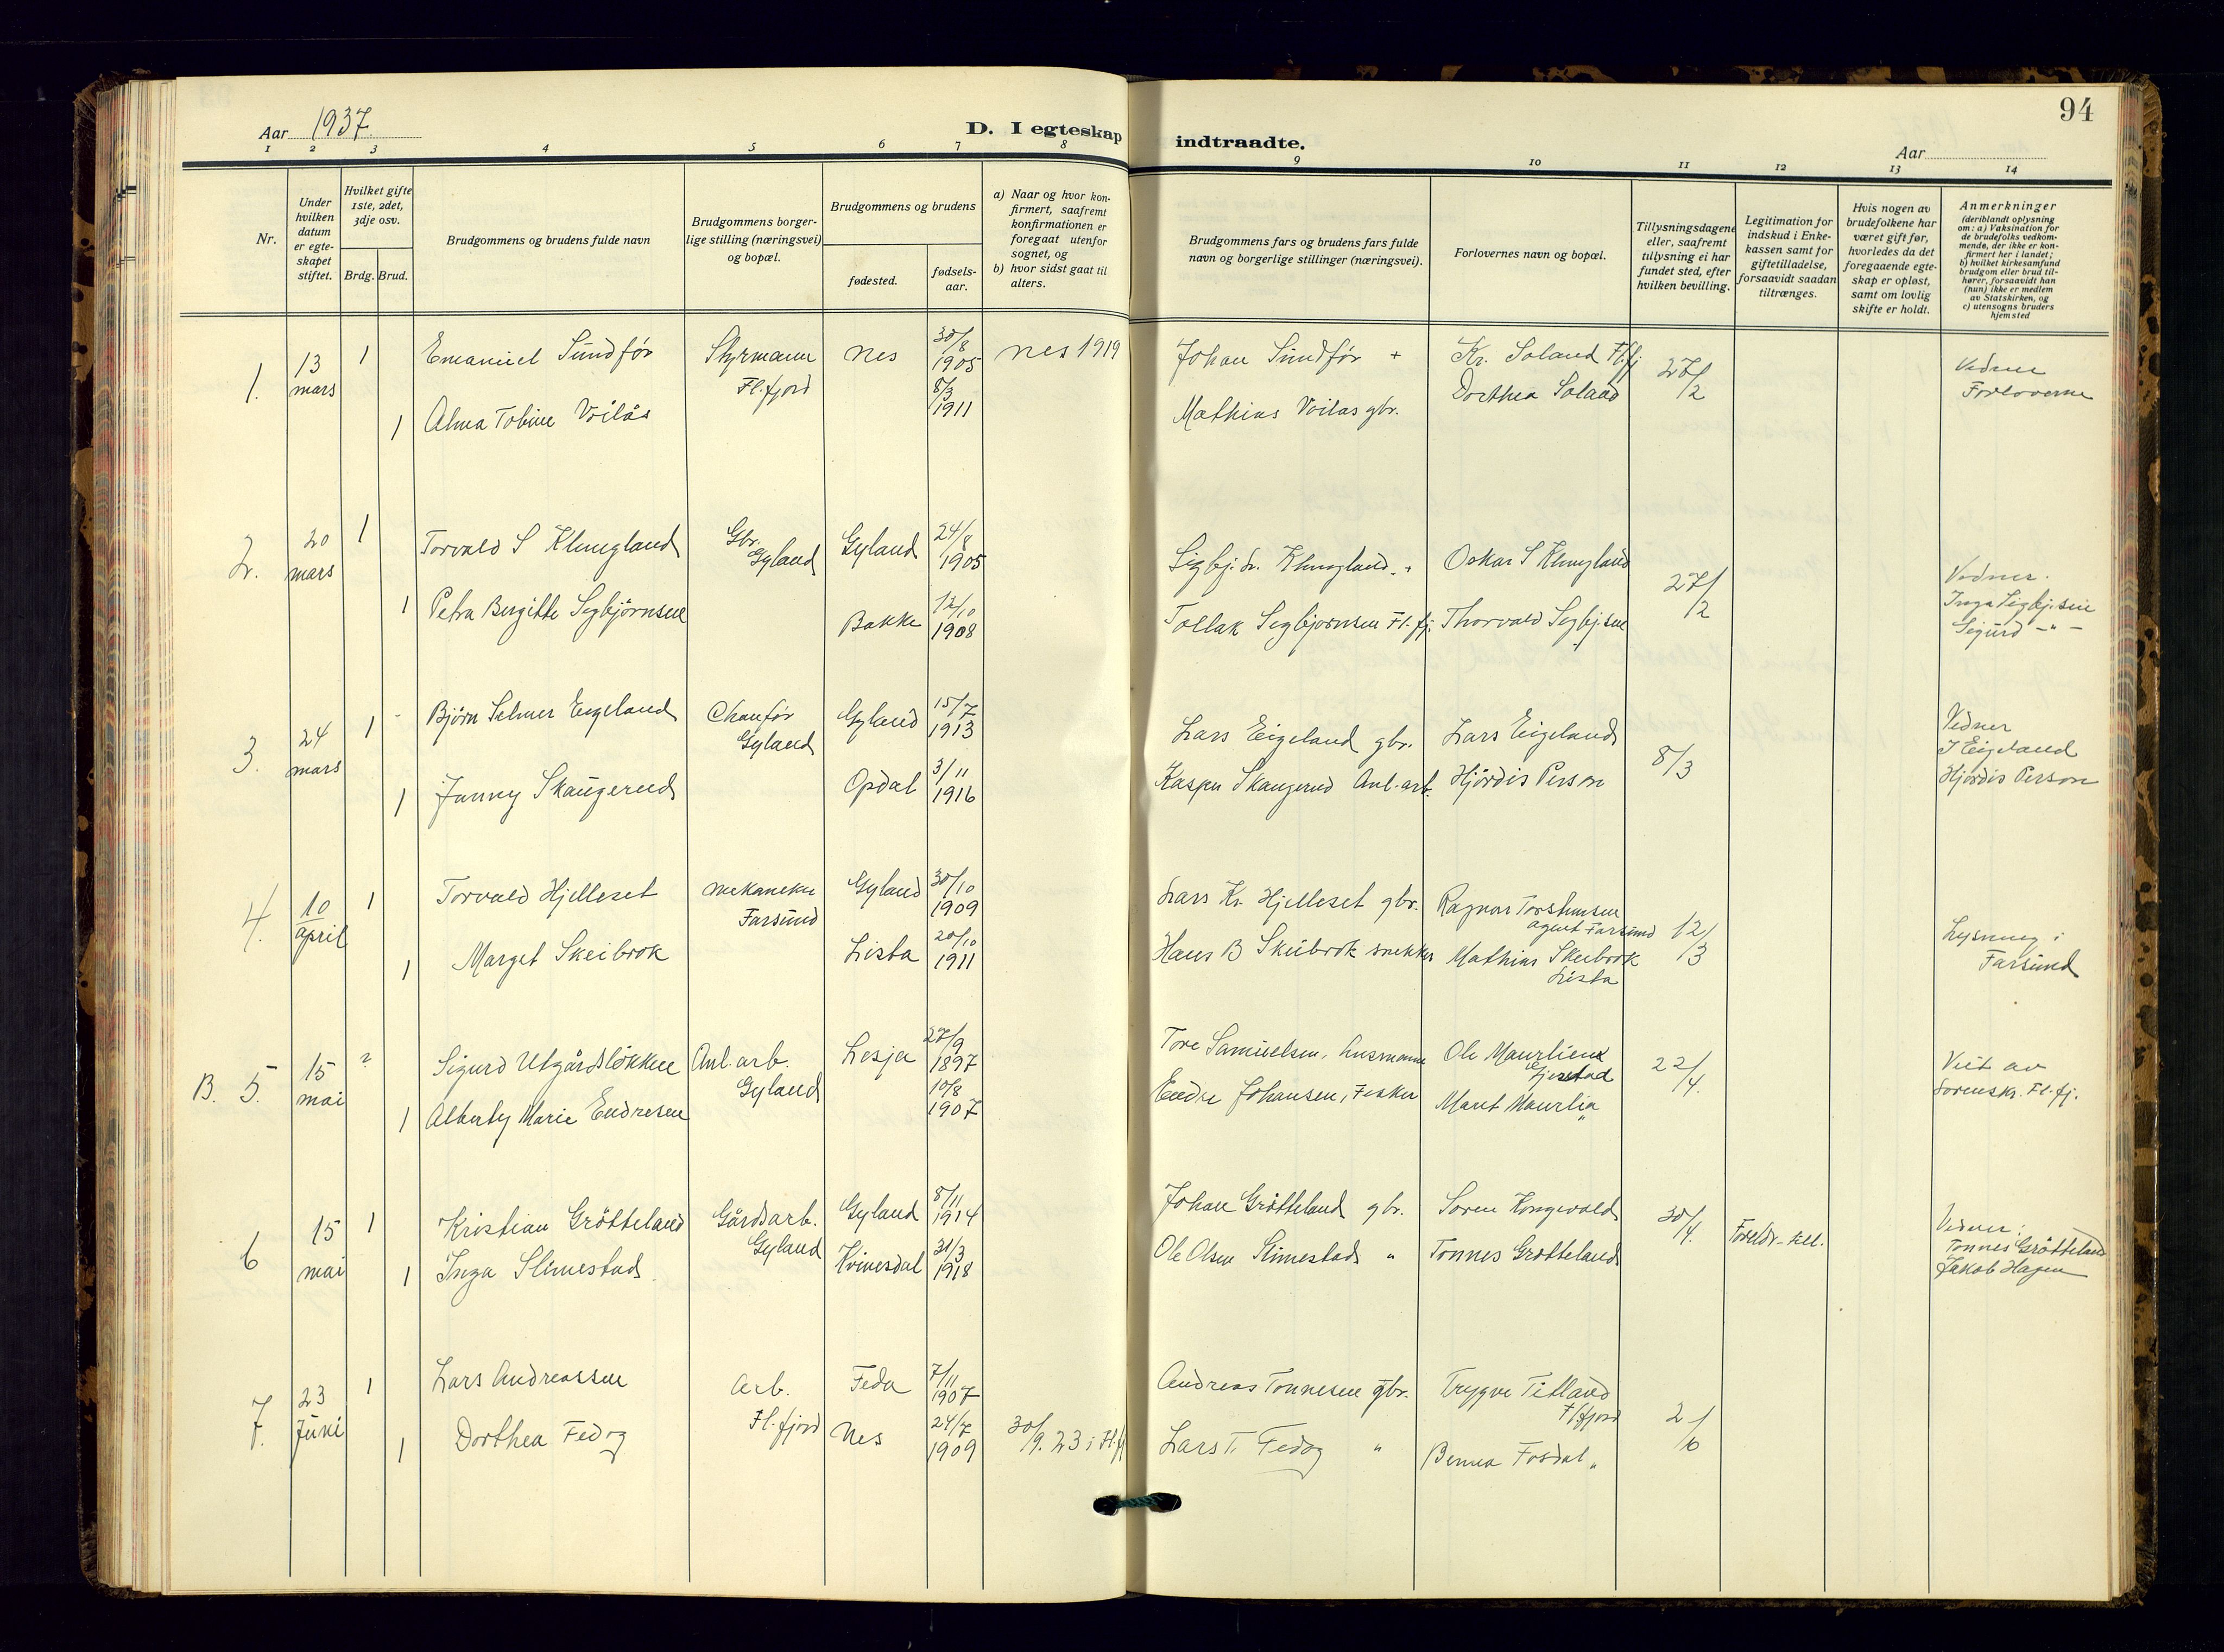 94
Aar 1937.
D. I egteskap indtraadte.
Aar
1 2 3 4 5 6 7 8 9 10 11 12 13 14
Nr.
Under hvilken datum er egteskapet stiftet.
Hvilket gifte 1ste, 2det, 3dje osv.
Brdg. Brud.
Brudgommens og brudens fulde navn
Brudgommens borgerlige stilling (næringsvei) og bopæl.
Brudgommens og brudens
fødested.
fødselsaar.
a) Naar og hvor konfirmert, saafremt konfirmationen er foregaat utenfor sognet, og
b) hvor sidst gaat til alters.
Brudgommens fars og brudens fars fulde navn og borgerlige stillinger (næringsvei).
Forlovernes navn og bopæl.
Tillysningsdagene eller, saafremt tillysning ei har fundet sted, efter hvilken bevilling.
Legitimation for indskud i Enkekassen samt for giftetilladelse, forsaavidt saadan tiltrænges.
Hvis nogen av brudefolkene har været gift før, hvorledes da det foregaaende egteskap er opløst, samt om lovlig skifte er holdt.
Anmerkninger
(deriblandt oplysning om: a) Vaksination for de brudefolks vedkommende, der ikke er konfirmert her i landet; b) hvilket kirkesamfund brudgom eller brud tilhører, forsaavidt han (hun) ikke er medlem av Statskirken, og c) utensogns bruders hjemsted
1. 13 mars 1 Emanuel Sundfør Styrmann Fl.fjord Nes 30/8 1905 Nes 1919 Johan Sundfør + Kr. Soland Fl.fj 27/2 Vidner Forloverne
1 Alma Tobine Voilås 8/3 1911 Mathias Voilas gbr. Dorthea Soland
2. 20 mars 1 Torvald S Klungland Gbr. Gyland Gyland 24/8 1905 Sigbj. S. Klungland + Oskar S Klungland 27/2 Vidner.
1 Petra Bergitte Segbjørnsen Bakke 12/10 1908 Tollak Segbjørnsen Fl.fj. Thorvald Segbj.sen Inga Sigbj.sen
Sigurd -"-
3. 24 mars 1 Bjørn Selmer Eigeland Chauför Gyland Gyland 15/7 1913 Lars Eigeland gbr. Lars Eigeland 8/3 Vidner
1 Jenny Skaugerud Opdal 3/11 1916 Kasper Skaugerud Anl.arb. Hjördis Person I Eigeland
Hjördis Person
4. 10 april 1 Torvald Hjelleset mekaneker Farsund Gyland 30/10 1909 Lars Kr. Hjelleset gbr. Ragnar Torstensen agent Farsund 12/3 Lysning i Farsund
1 Marget Skeibrok Lista 20/10 1911 Hans B Skeibrok snekker Mathias Skeibrok Lista
B. 5. 15 mai 2 Sigurd Utgårdsløkken Anl.arb. Gyland Lesja 27/9 1897 Tore Samuelsen, husmann Ole Maurlien Gjerstad 22/4. Viet av Sorenskr. Fl.fj.
1 Alberty Marie Endresen 10/8 1907 Endre Johansen, Fisker Marit Maurlia "
6 15 mai 1 Kristian Grøtteland Gårdsarb. Gyland Gyland 8/11 1914 Johan Grøtteland gbr. Soren Kongevold 30/4. Foreldr.-till. Vidner:
1 Inga Slimestad Kvinesdal 31/3 1918 Ole Olsen Slimestad " Tonnes Grøtteland Tonnes Grøtteland
Jakob Hagen
7. 23 Juni 1 Lars Andreassen Arb. Fl.fjord Feda 7/11 1907 Andreas Tonnesen gbr. Trygve Titland Fl.fjord 2/6
1 Dorthea Fedog Nes 24/7 1909 30/9. 23 i Fl.fj Lars T. Fedog " Benna Fosdal "